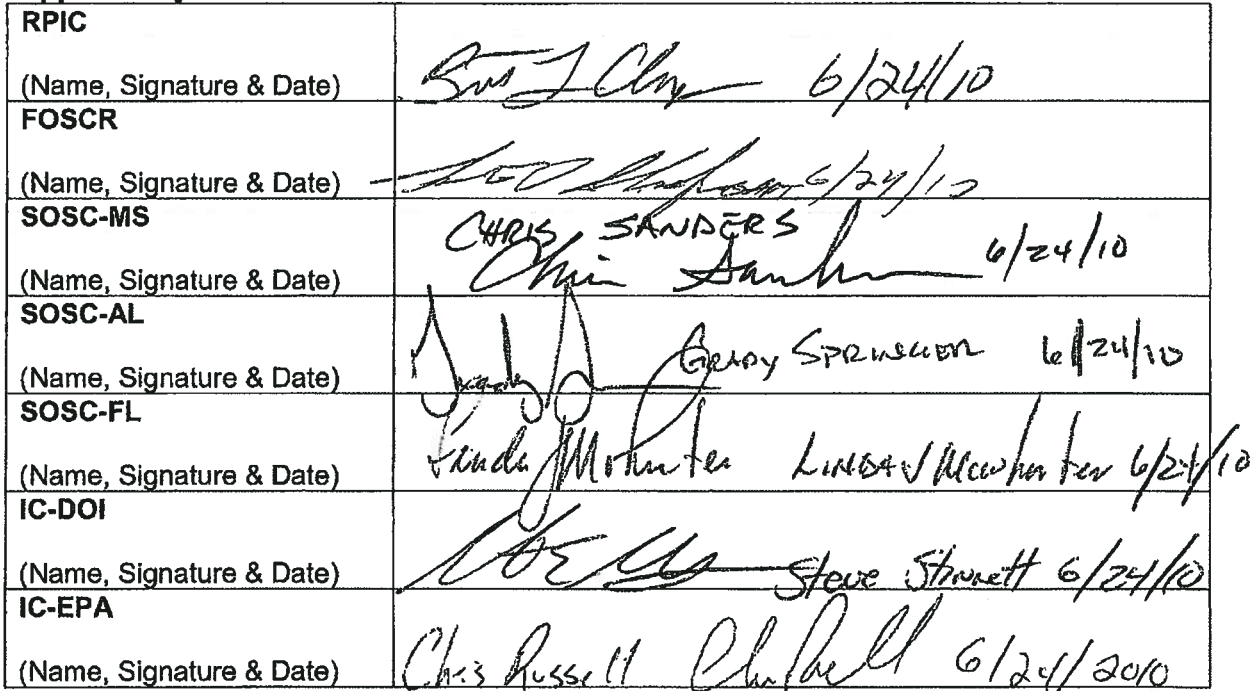 RPIC
(Name, Signature & Date) 6/24/10
FOSCR
(Name, Signature & Date) 6/24/10
SOSC-MS
CHRIS SANDERS
(Name, Signature & Date) Chris Sanders 6/24/10
SOSC-AL
GRADY SPRINGER 6/24/10
(Name, Signature & Date)
SOSC-FL
(Name, Signature & Date) Linda J McWhorter LINDA J McWhorter 6/24/10
IC-DOI
(Name, Signature & Date) Steve Stinnett 6/24/10
IC-EPA
(Name, Signature & Date) Chris Russell 6/24/2010